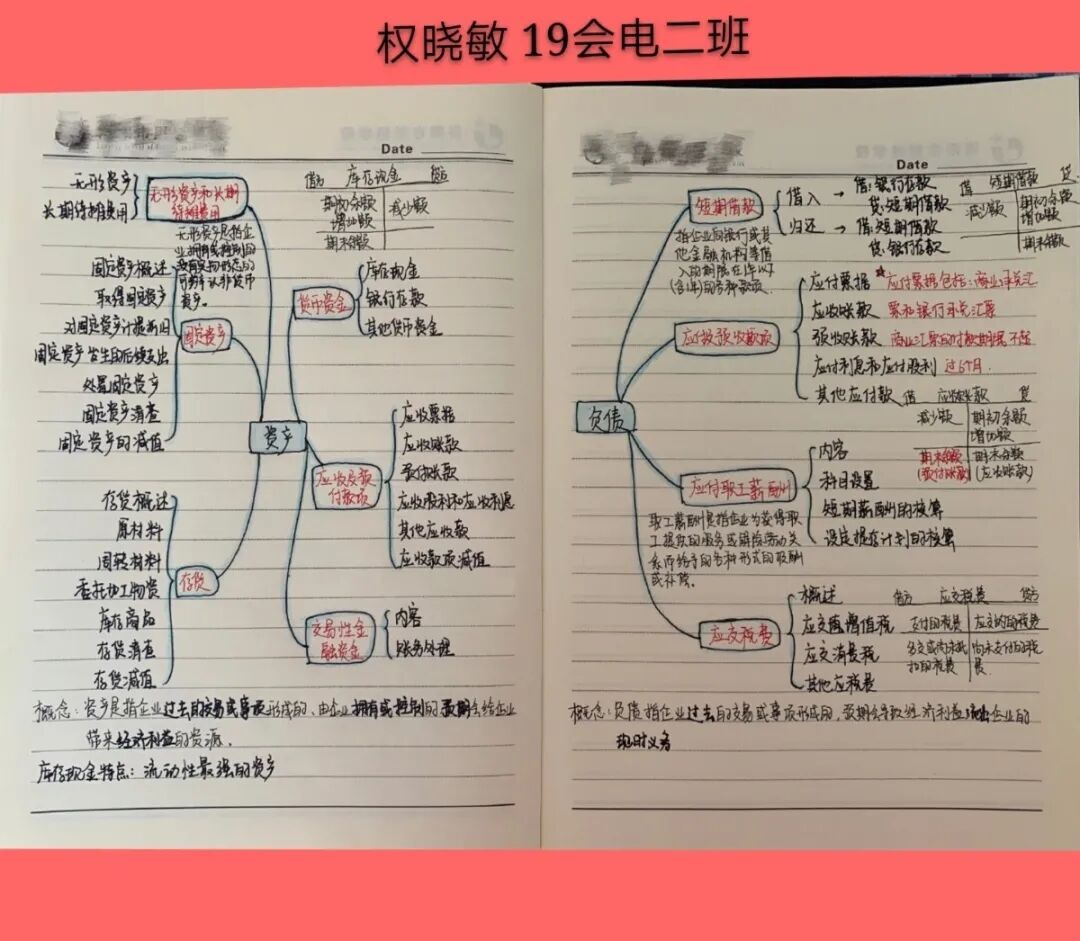 权晓敏 19会电二班
Date
无形资产
长期待摊费用
无形资产和长期
待摊费用
无形资产是指企
业拥有或控制的
没有实物形态的
可辨认非货币
资产。
借方 库存现金 贷方
期初余额
增加额
减少额
期末余额
固定资产概述
取得固定资产
对固定资产计提折旧
固定资产发生的后续支出
处置固定资产
固定资产清查
固定资产的减值
固定资产
货币资金
库存现金
银行存款
其他货币资金
资产
应收及预
付款项
应收票据
应收账款
预付账款
应收股利和应收利息
其他应收款
应收款项减值
存货概述
原材料
周转材料
委托加工物资
库存商品
存货清查
存货减值
存货
交易性金
融资金
内容
账务处理
概念：资产是指企业过去的交易或事项形成的、由企业拥有或控制的预期会给企业
带来经济利益的资源。
库存现金特点：流动性最强的资产
Date
短期借款
借入 → 借：银行存款
贷：短期借款
归还 → 借：短期借款
贷：银行存款
借 短期借款 贷
减少额
期初余额
增加额
期末余额
指企业向银行或其
他金融机构等借
入的期限在1年以下
(含1年)的各种款项
应付及预收款项
应付票据
应收账款
预收账款
应付利息和应付股利
其他应付款
★应付票据包括：商业承兑汇
票和银行承兑汇票
商业汇票的付款期限不超
过6个月
借 应收账款 贷
减少额
期初余额
增加额
期末余额
(预付账款)
期末余额
(应收账款)
负债
应付职工薪酬
内容
科目设置
短期薪酬的核算
设定提存计划的核算
职工薪酬是指企业为获得职
工提供的服务或解除劳动关
系而给予的各种形式的报酬
或补偿。
应交税费
概述
应交增值税
应交消费税
其他应税费
借方 应交税费 贷方
支付的税费
应交纳的税费
多交或尚未抵
扣的税费
尚未支付的税
费
概念：负债指企业过去的交易或事项形成的，预期会导致经济利益流出企业的
现时义务